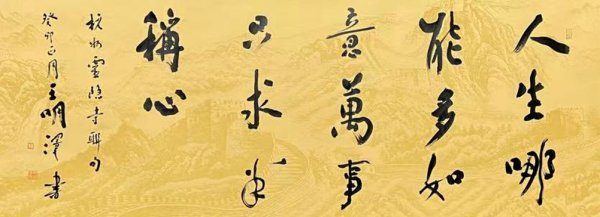 人生哪
能多如
意萬事
只求半
稱心
杭州靈隱寺聯句
癸卯正月王明澤書